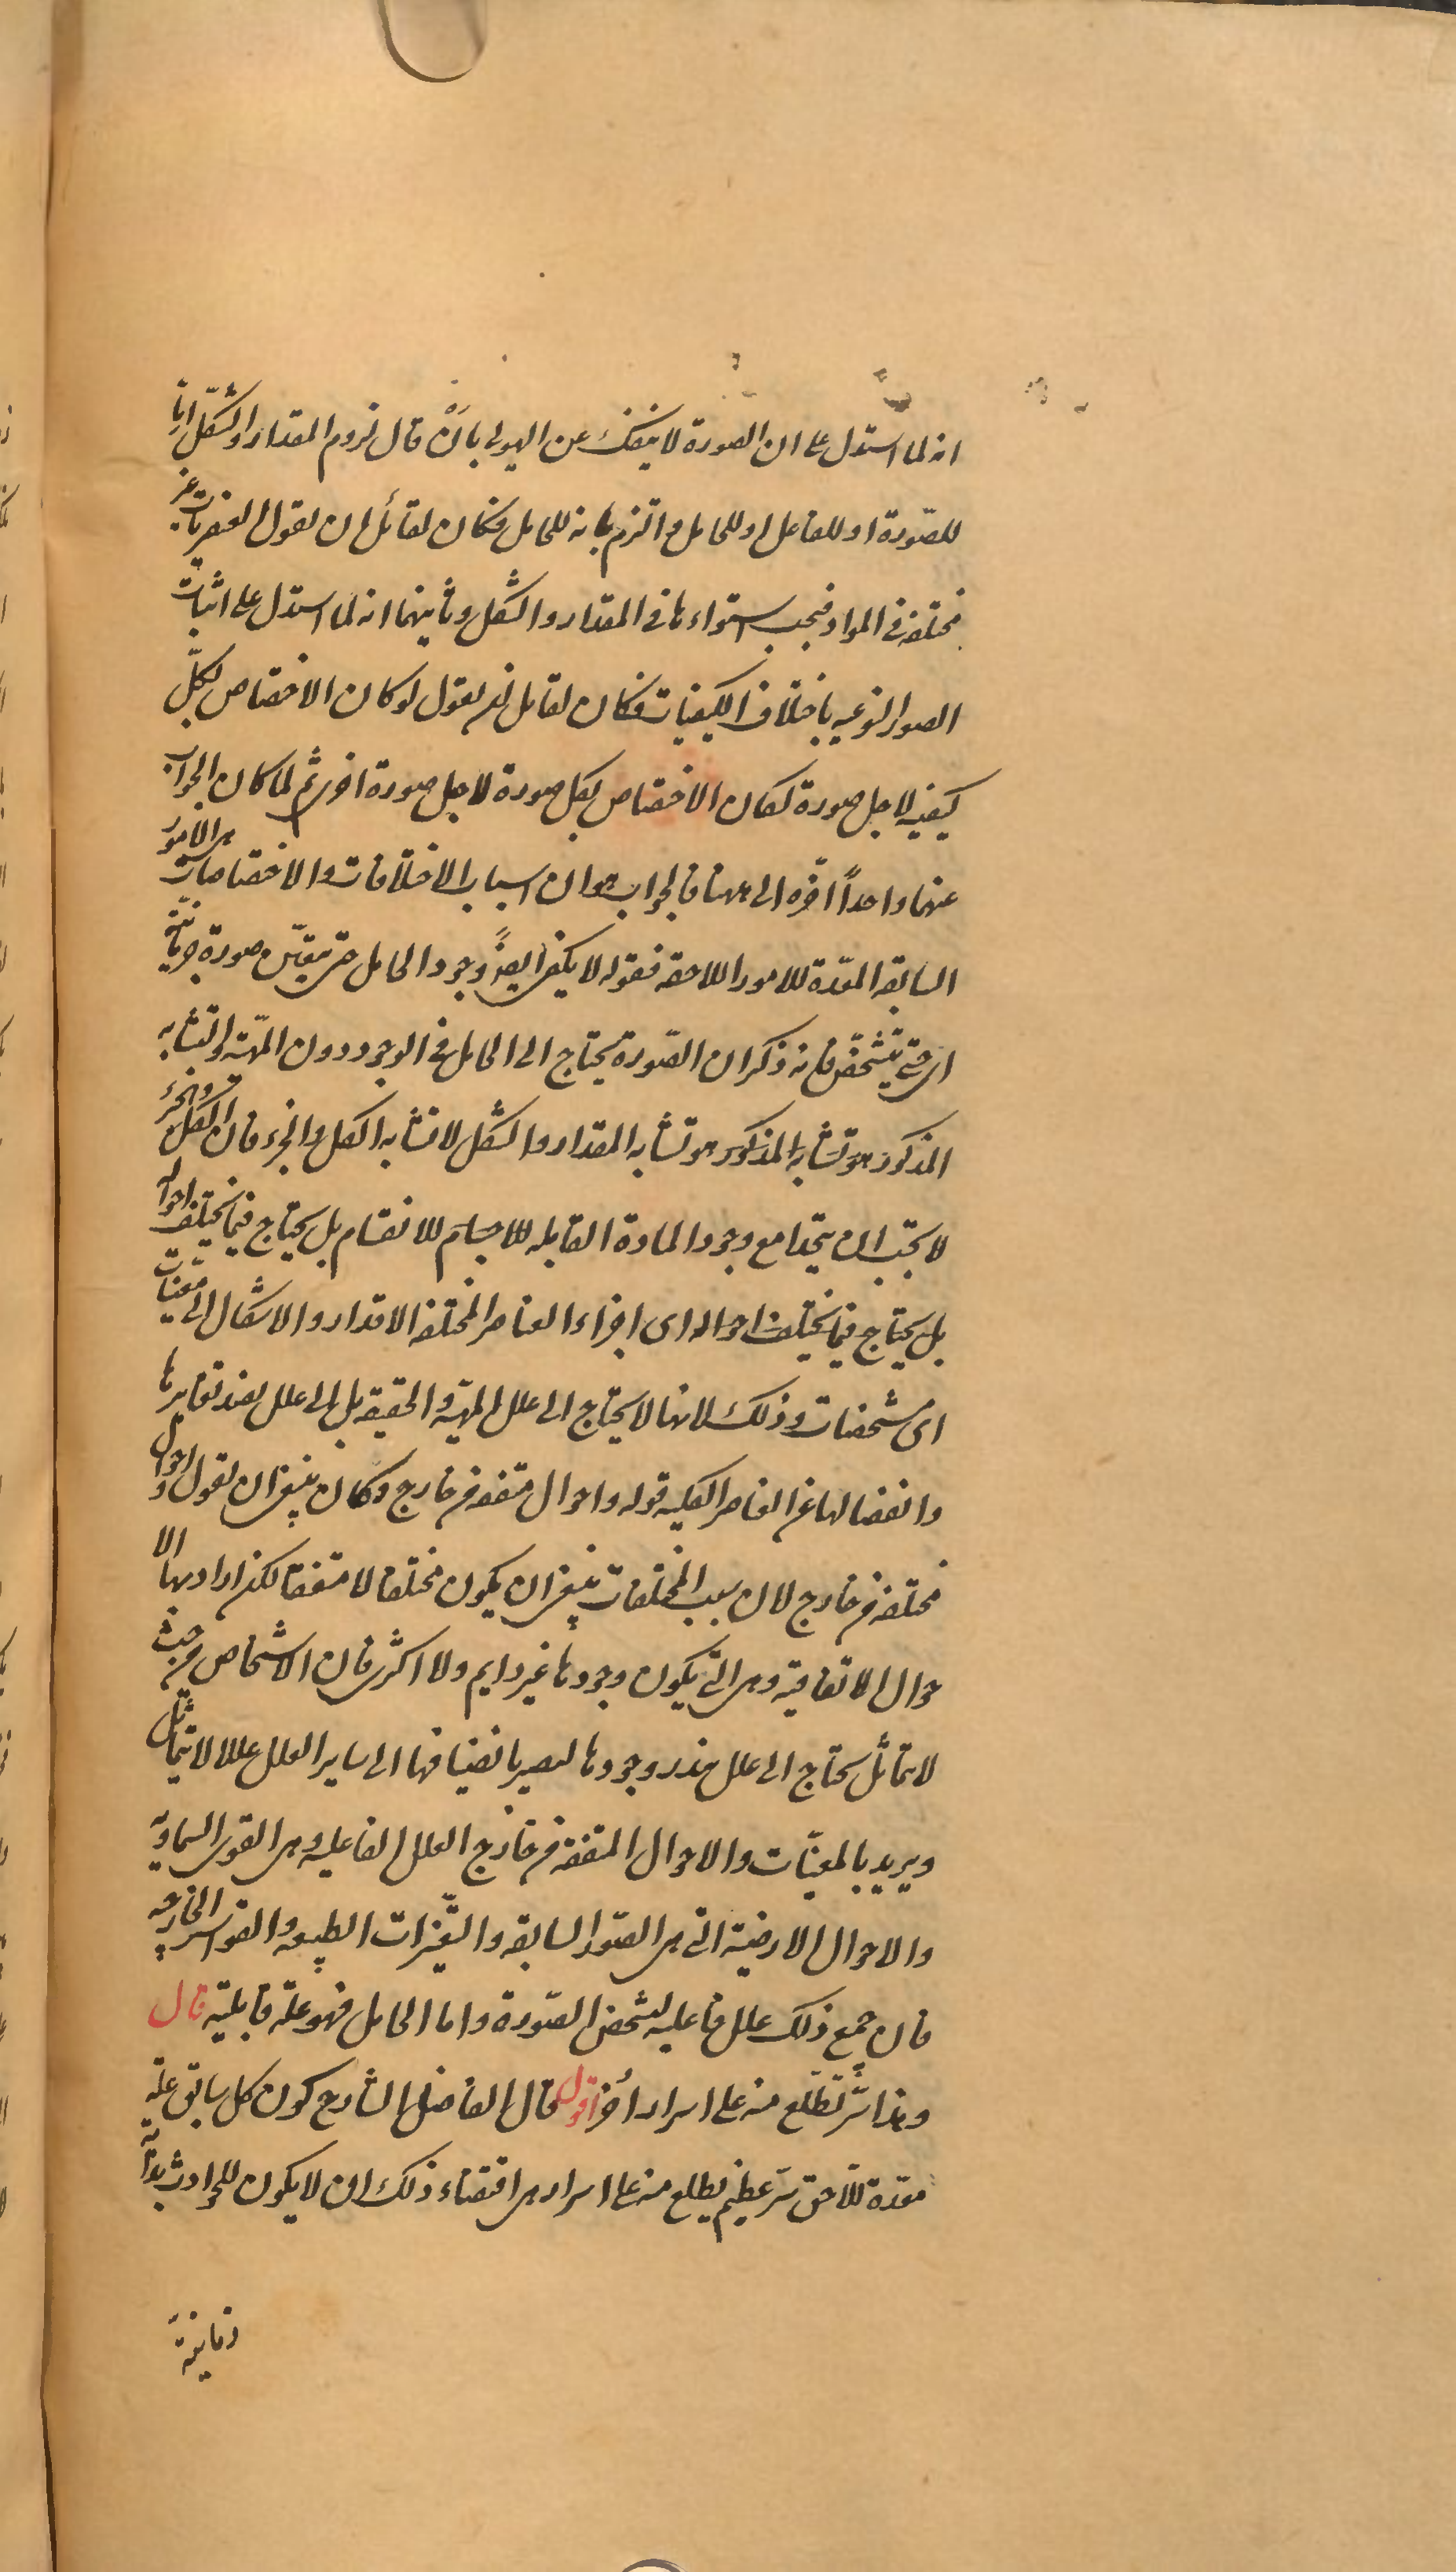 انه لما استدل على ان الصورة لا ينفك عن الهيولى بان قال لزوم المقدار والشكل اما
للصورة او للفاعل او للحامل والتزم بانه للحامل فكان لقائل ان يقول العنصريات غير
مختلفة في المواد فيجب استواءها في المقدار والشكل وثانيهما انه لما استدل على اثبات
الصور النوعيه باختلاف الكيفيات فكان لقايل ان يقول لو كان الاختصاص لكل
كيفيه لاجل صورة لكان الاختصاص بكل صورة لاجل صورة اخرى ثم لما كان الجواب
عنهما واحداً اخره الى ههنا فالجواب هو ان اسباب الاختلافات والاختصاصات هى الامور
السابقه المعدة للامور اللاحقه فقوله لا يكفى ايضً وجود الحامل حتى يتعين صورة جرمانية
اى حتى يتشخص فانه ذكر ان الصورة يحتاج الى الحامل في الوجود دون المهية والتشابه
المذكور هو تشابه المذكور هو تشابه المقدار والشكل لا تشابه الكل والجزء فان الكل والجزء
لا يجب ان يتحدا مع وجود المادة القابله للاجسام للانقسام بل يحتاج فيما يختلف احواله
بل يحتاج فيما يختلف احواله اى اجزاء العناصر المختلفة الاقدار والاشكال الى معينات
اى مشخصات وذلك لانها لا يحتاج الى علل المهية والحقيقه بل الى علل يفيد تغايرها
وانفصالها عن العناصر الكلية قوله واحوال متفقه من خارج وكان ينبغى ان يقول واحوال
مختلفه من خارج لان سبب المختلفات ينبغى ان يكون مختلفا لا متفقا لكنه اراد بها الا
حوال الاتفاقية وهى التى يكون وجودها غير دايم ولا اكثرى فان الاشخاص من حيث
لا تماثل يحتاج الى علل يندر وجودها ليصير بانضيافها الى ساير العلل عللا لا يتماثل
ويريد بالمعينات والاحوال المتفقة من خارج العلل الفاعليه وهى القوى السماوية
والاحوال الارضية التى هى الصور السابقه والتغيرات الطبيعه والقواسر الخارجه
فان جميع ذلك علل فاعليه لتشخص الصورة واما الحامل فهو علة قابلية قال
وهذا سر تطلع منه على اسرار اخر اقول قال الفاضل الشارح كون كل سابق علة
معدة للاحق سر عظيم يطلع منه على اسرار هى اقتضاء ذلك ان لا يكون للحوادث بداية